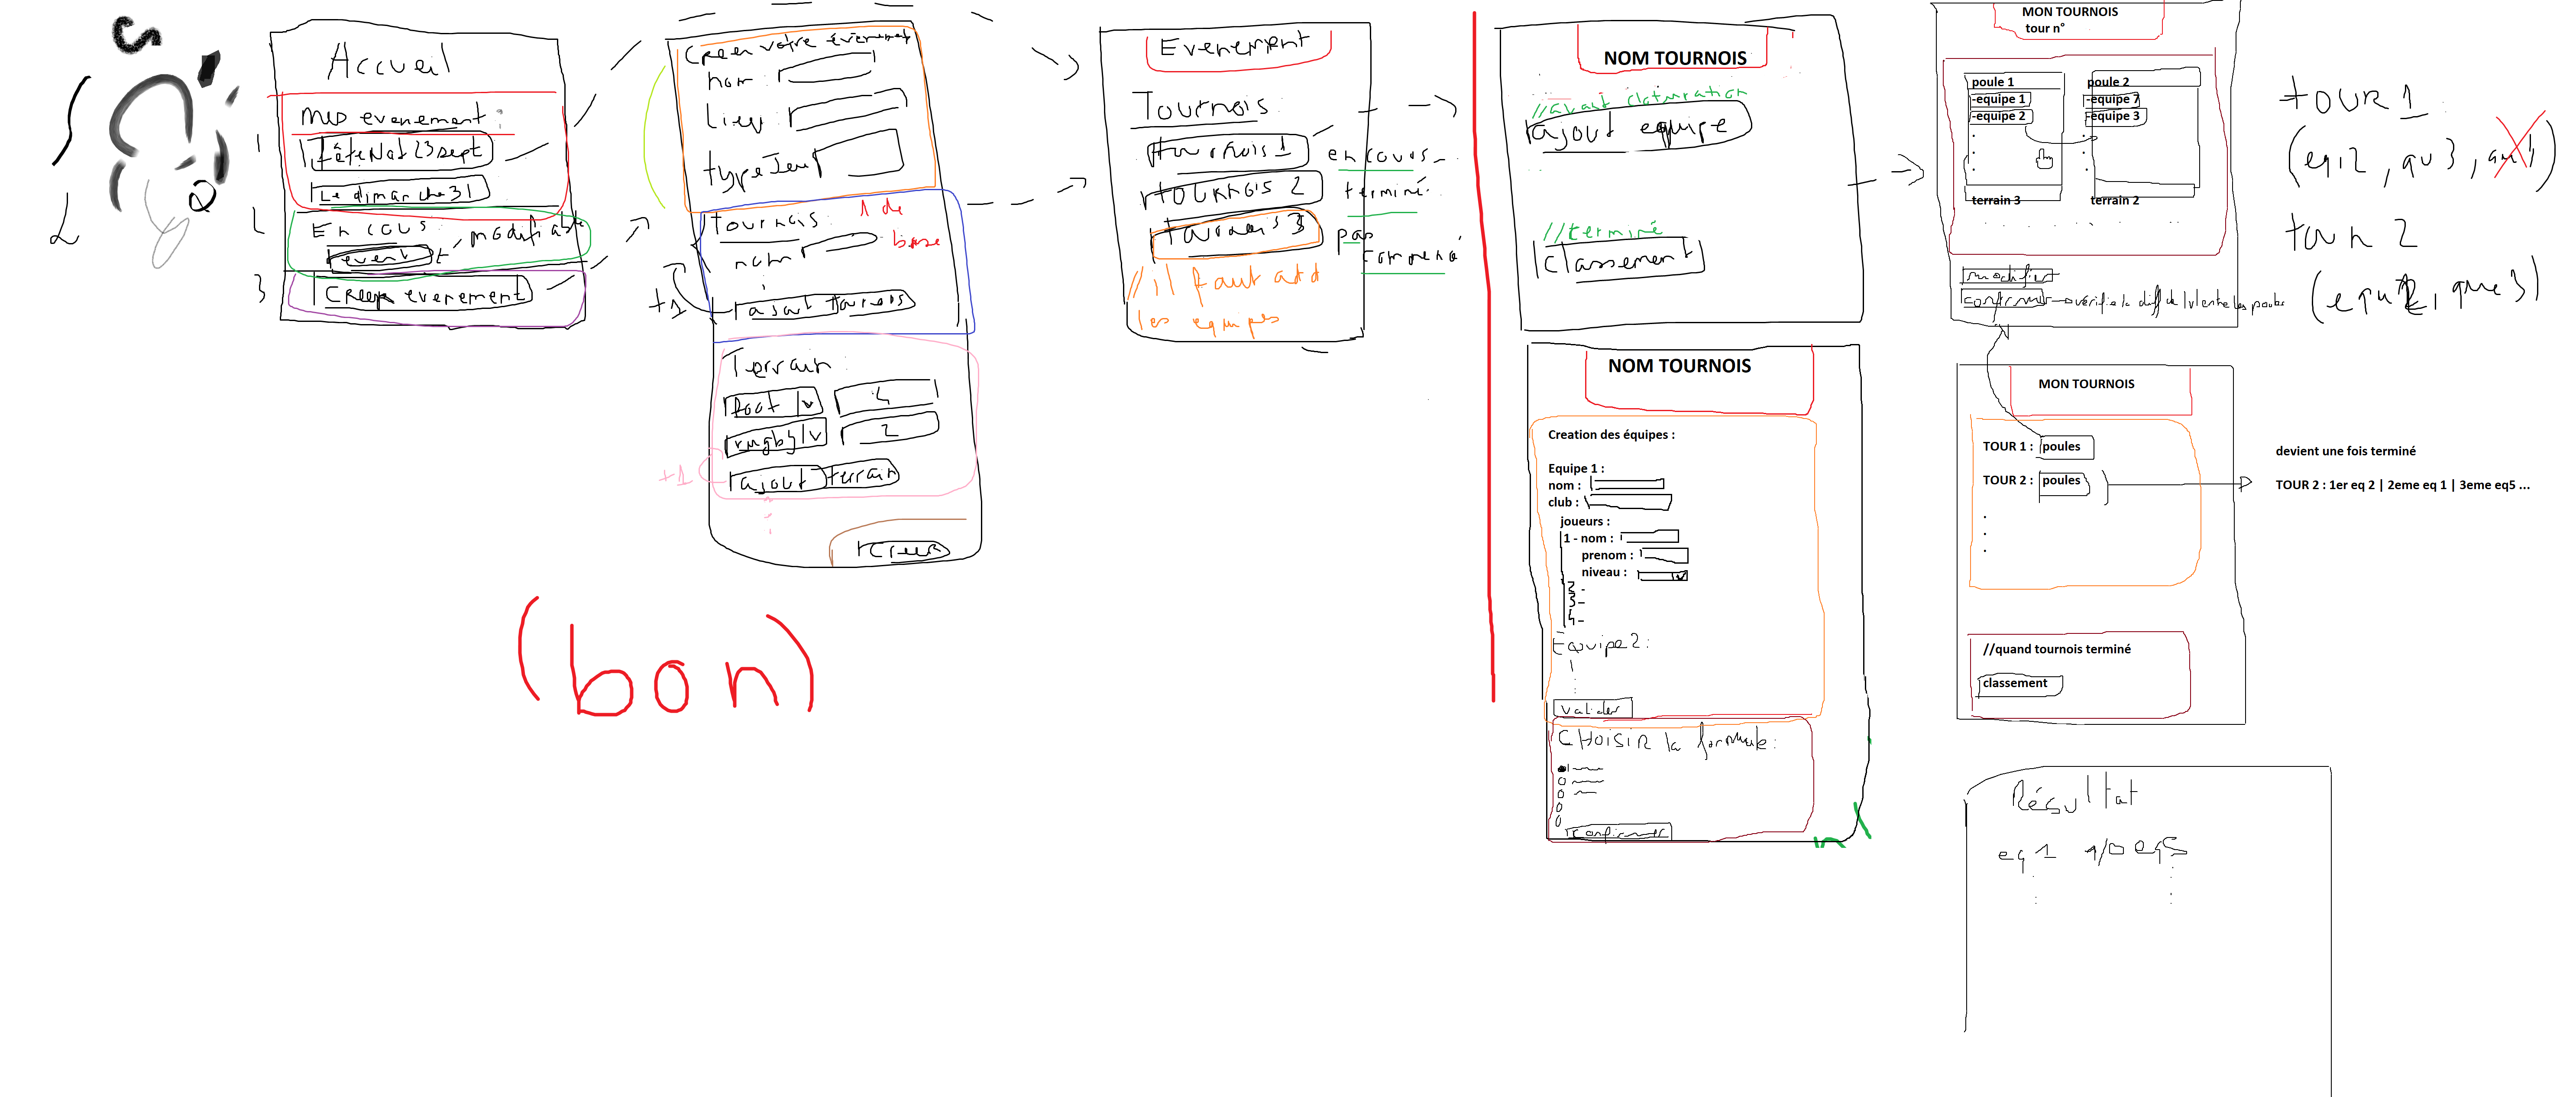 Accueil
mes evenement :
1
fêteNat 23 sept
Le dimanche 31
2
En cous :
event
, modifiable
3
Creer evenement
2
Creer votre évènement
nom :
Lieu :
typeJeu
tournois :
1 de
base
nom
+1
ajout tournois
Terrain :
foot
4
rugby
2
+1
ajout terrain
Creer
(bon)
Evenement
Tournois :
tournois 1
tournois 2
tournois 3
en cours
terminé
pas
commencé
// il faut add
les equipes
NOM TOURNOIS
//avant cloturation
ajout equipe
//terminé
Classement
NOM TOURNOIS
Creation des équipes :
Equipe 1 :
nom :
club :
joueurs :
1 - nom :
prenom :
niveau :
2 -
3 -
4 -
Equipe 2 :
valider
CHOISIR la formule :
Confirmer
MON TOURNOIS
tour n°
poule 1
-equipe 1
-equipe 2
terrain 3
poule 2
-equipe 7
-equipe 3
terrain 2
modifier
confirmer
verifie la diff de lvl entre les poules
tour 1
tour 2
MON TOURNOIS
TOUR 1 : poules
TOUR 2 : poules
devient une fois terminé
TOUR 2 : 1er eq 2 | 2eme eq 1 | 3eme eq5 ...
//quand tournois terminé
classement
Résultat
eq 1 1/0 eq5